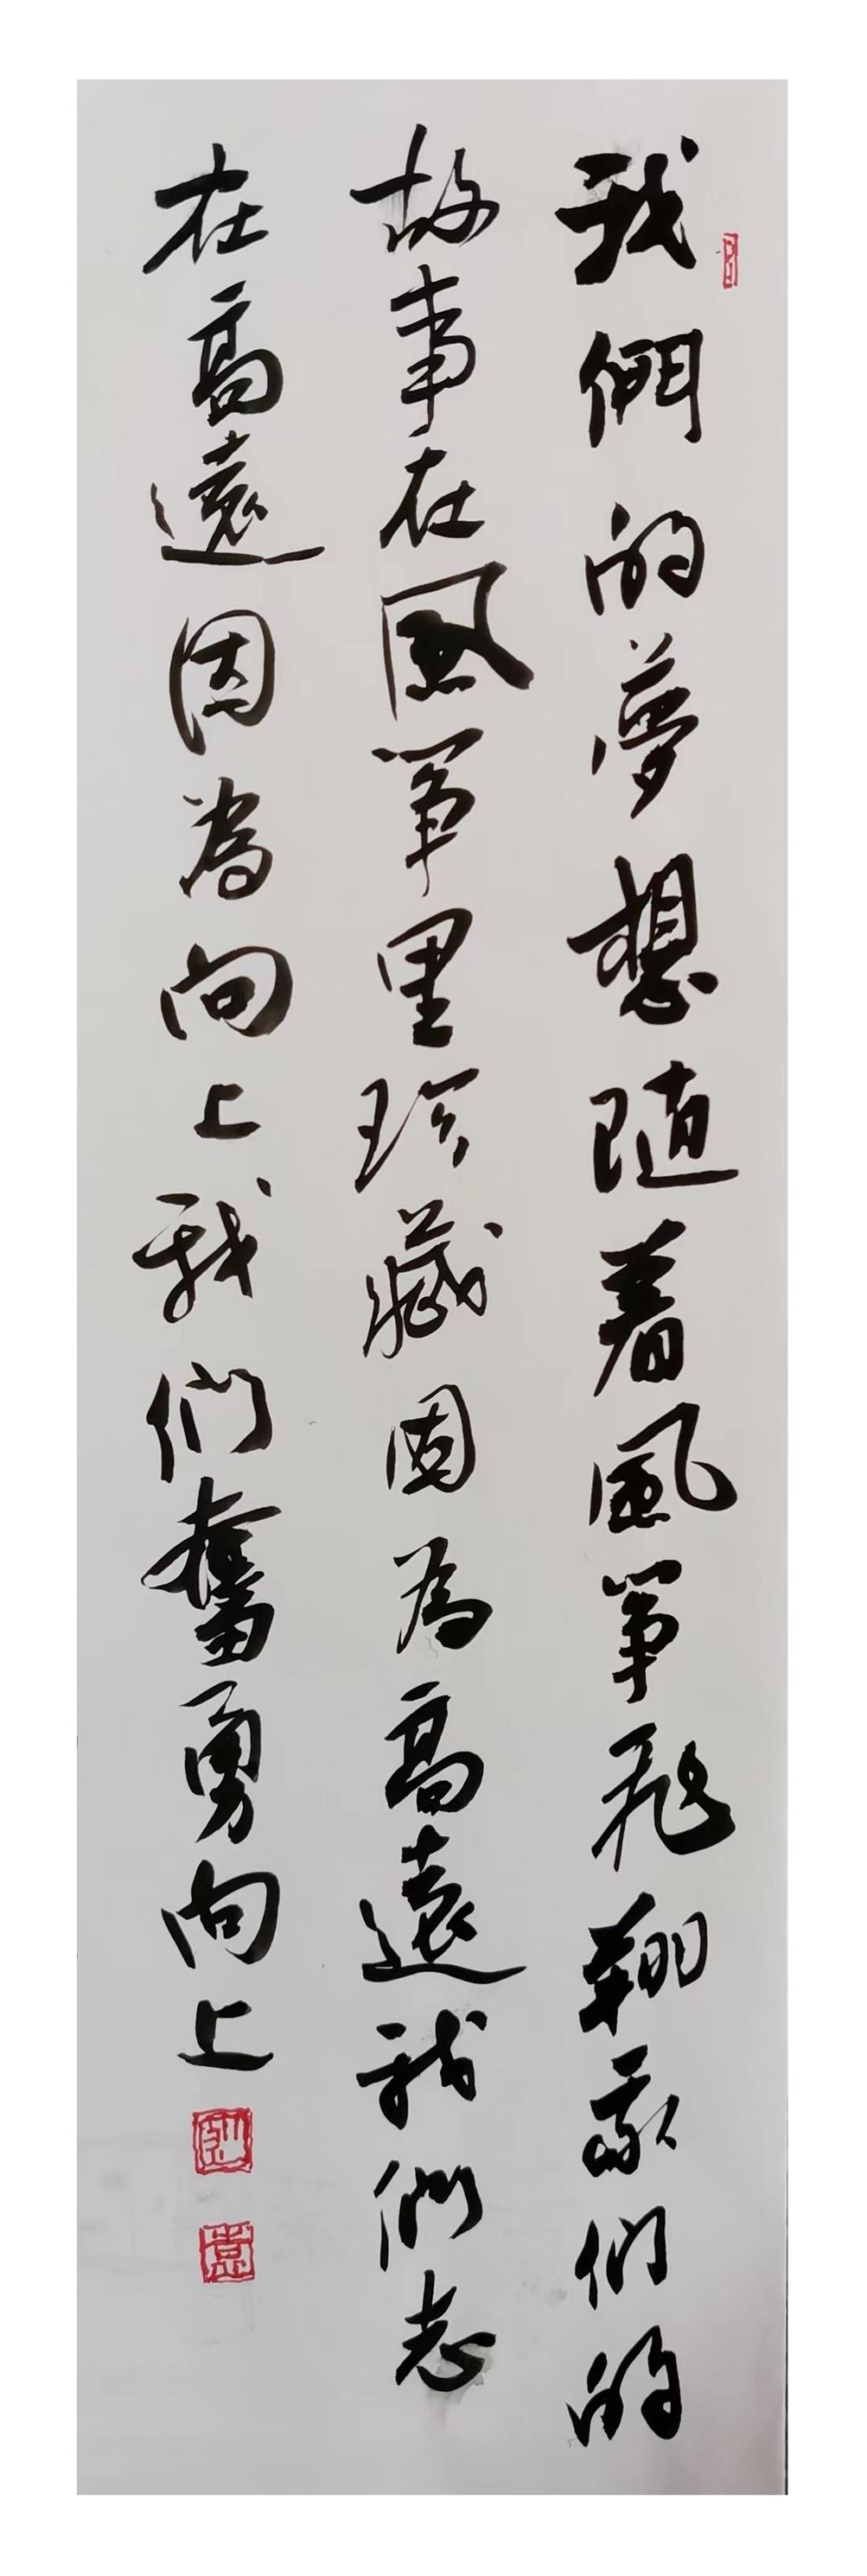 我們的夢想随着風筝飛翔我们的
故事在風筝里珍藏因為高遠我們志
在高遠因為向上我们奮勇向上